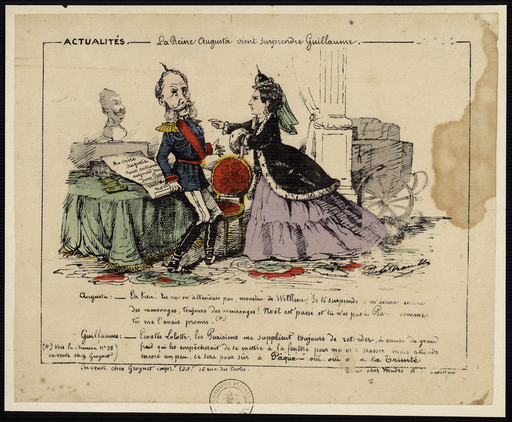 ACTUALITÉS. — La Reine Augusta vient surprendre Guillaume.
Ma chère
Augusta
Nous
Augusta: — Eh bien, tu ne m'attendais pas, monstre de Wilhem, je te surprends à m'écrire encore
des mensonges, toujours des mensonges! Noël est passé et tu n'es pas à Paris comme
tu me l'avais promis. (*)
Guillaume: — Ecoutes Lolotte, les Parisiens me supplient toujours de retarder, à cause du grand
froid qui les empêcherait de se mettre à la fenêtre pour me voir passer mais attends
encore un peu, ce sera pour sûr à Pâques — oui, oui ou à la Trinité
(*) Voir la Nº 38
en vente chez Grognet
En vente chez Grognet impr. Edit. 16 rue des Ecoles.
chez Madre